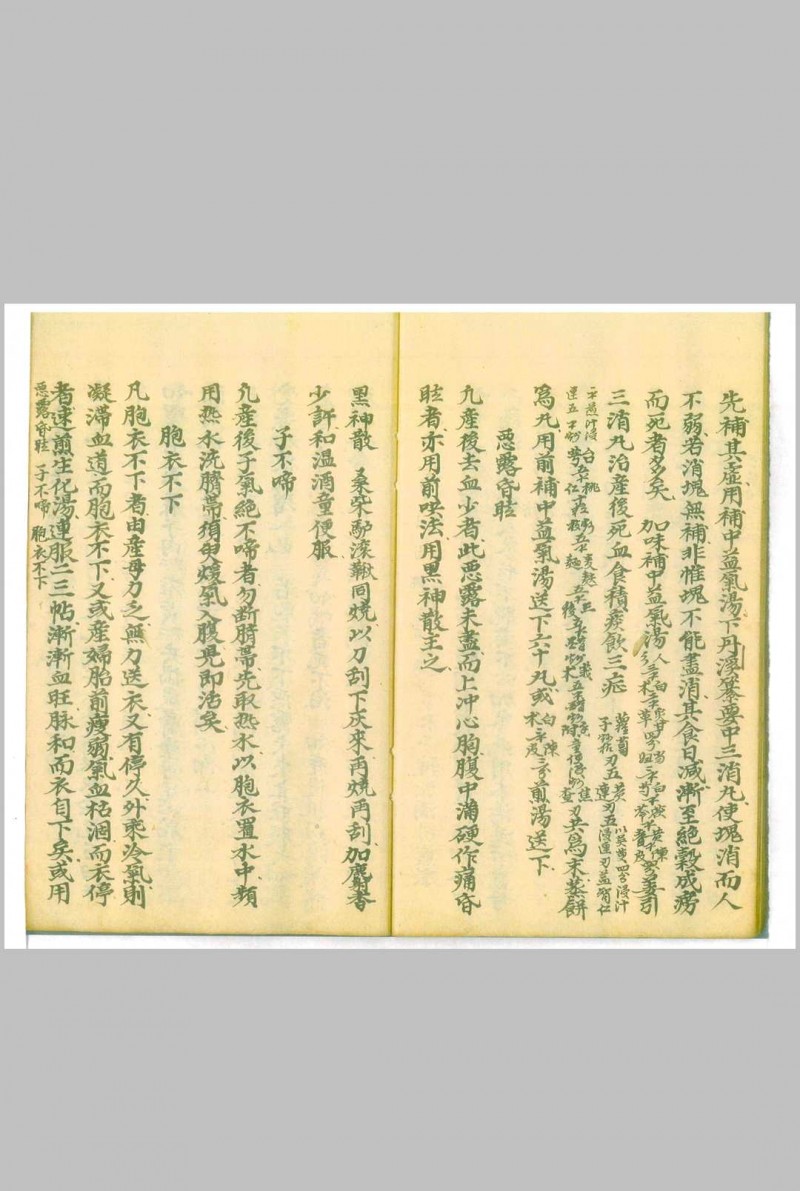 先補其虛用補中益氣湯下丹溪纂要中三消丸使塊消而人
不弱若消塊無補非惟塊不能盡消其食日減漸至絕穀成癆
而死者多矣 加味補中益氣湯
三消丸治産後死血食積痰飲三症
爲丸用前補中益氣湯送下六十丸或 白朮 陳皮 煎湯送下
惡露昏眩
凢産後去血少者此惡露未盡而上冲心胸腹中滿硬作痛昏
眩者亦用前哄法用黑神散主之
黑神散 桑柴 同燒以刀刮下灰來再燒再刮加麝香
少許和温酒童便服
子不啼
凢産後子氣絕不啼者勿断臍帶先取热水以胞衣置水中頻
用热水洗臍帶須臾煖氣入腹児即活矣
胞衣不下
凡胞衣不下者由産母力乏無力送衣又有停久外乘冷氣則
凝滞血道而胞衣不下又或産婦胎前瘦弱氣血枯涸而衣停
者速煎生化湯連服二三帖漸漸血旺脉和而衣自下矣或用
惡露昏眩 子不啼 胞衣不下